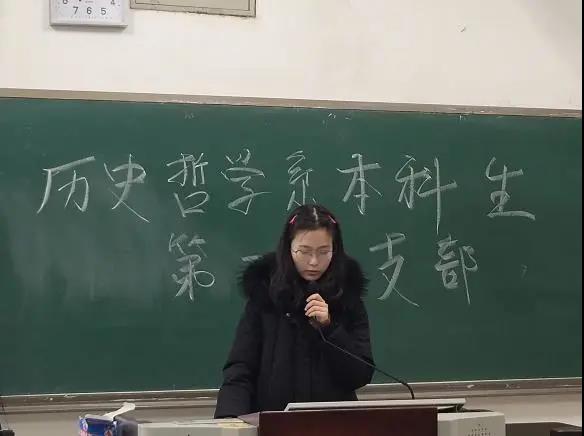 8 7 6 5 4
历史哲学系本科生
第 支部